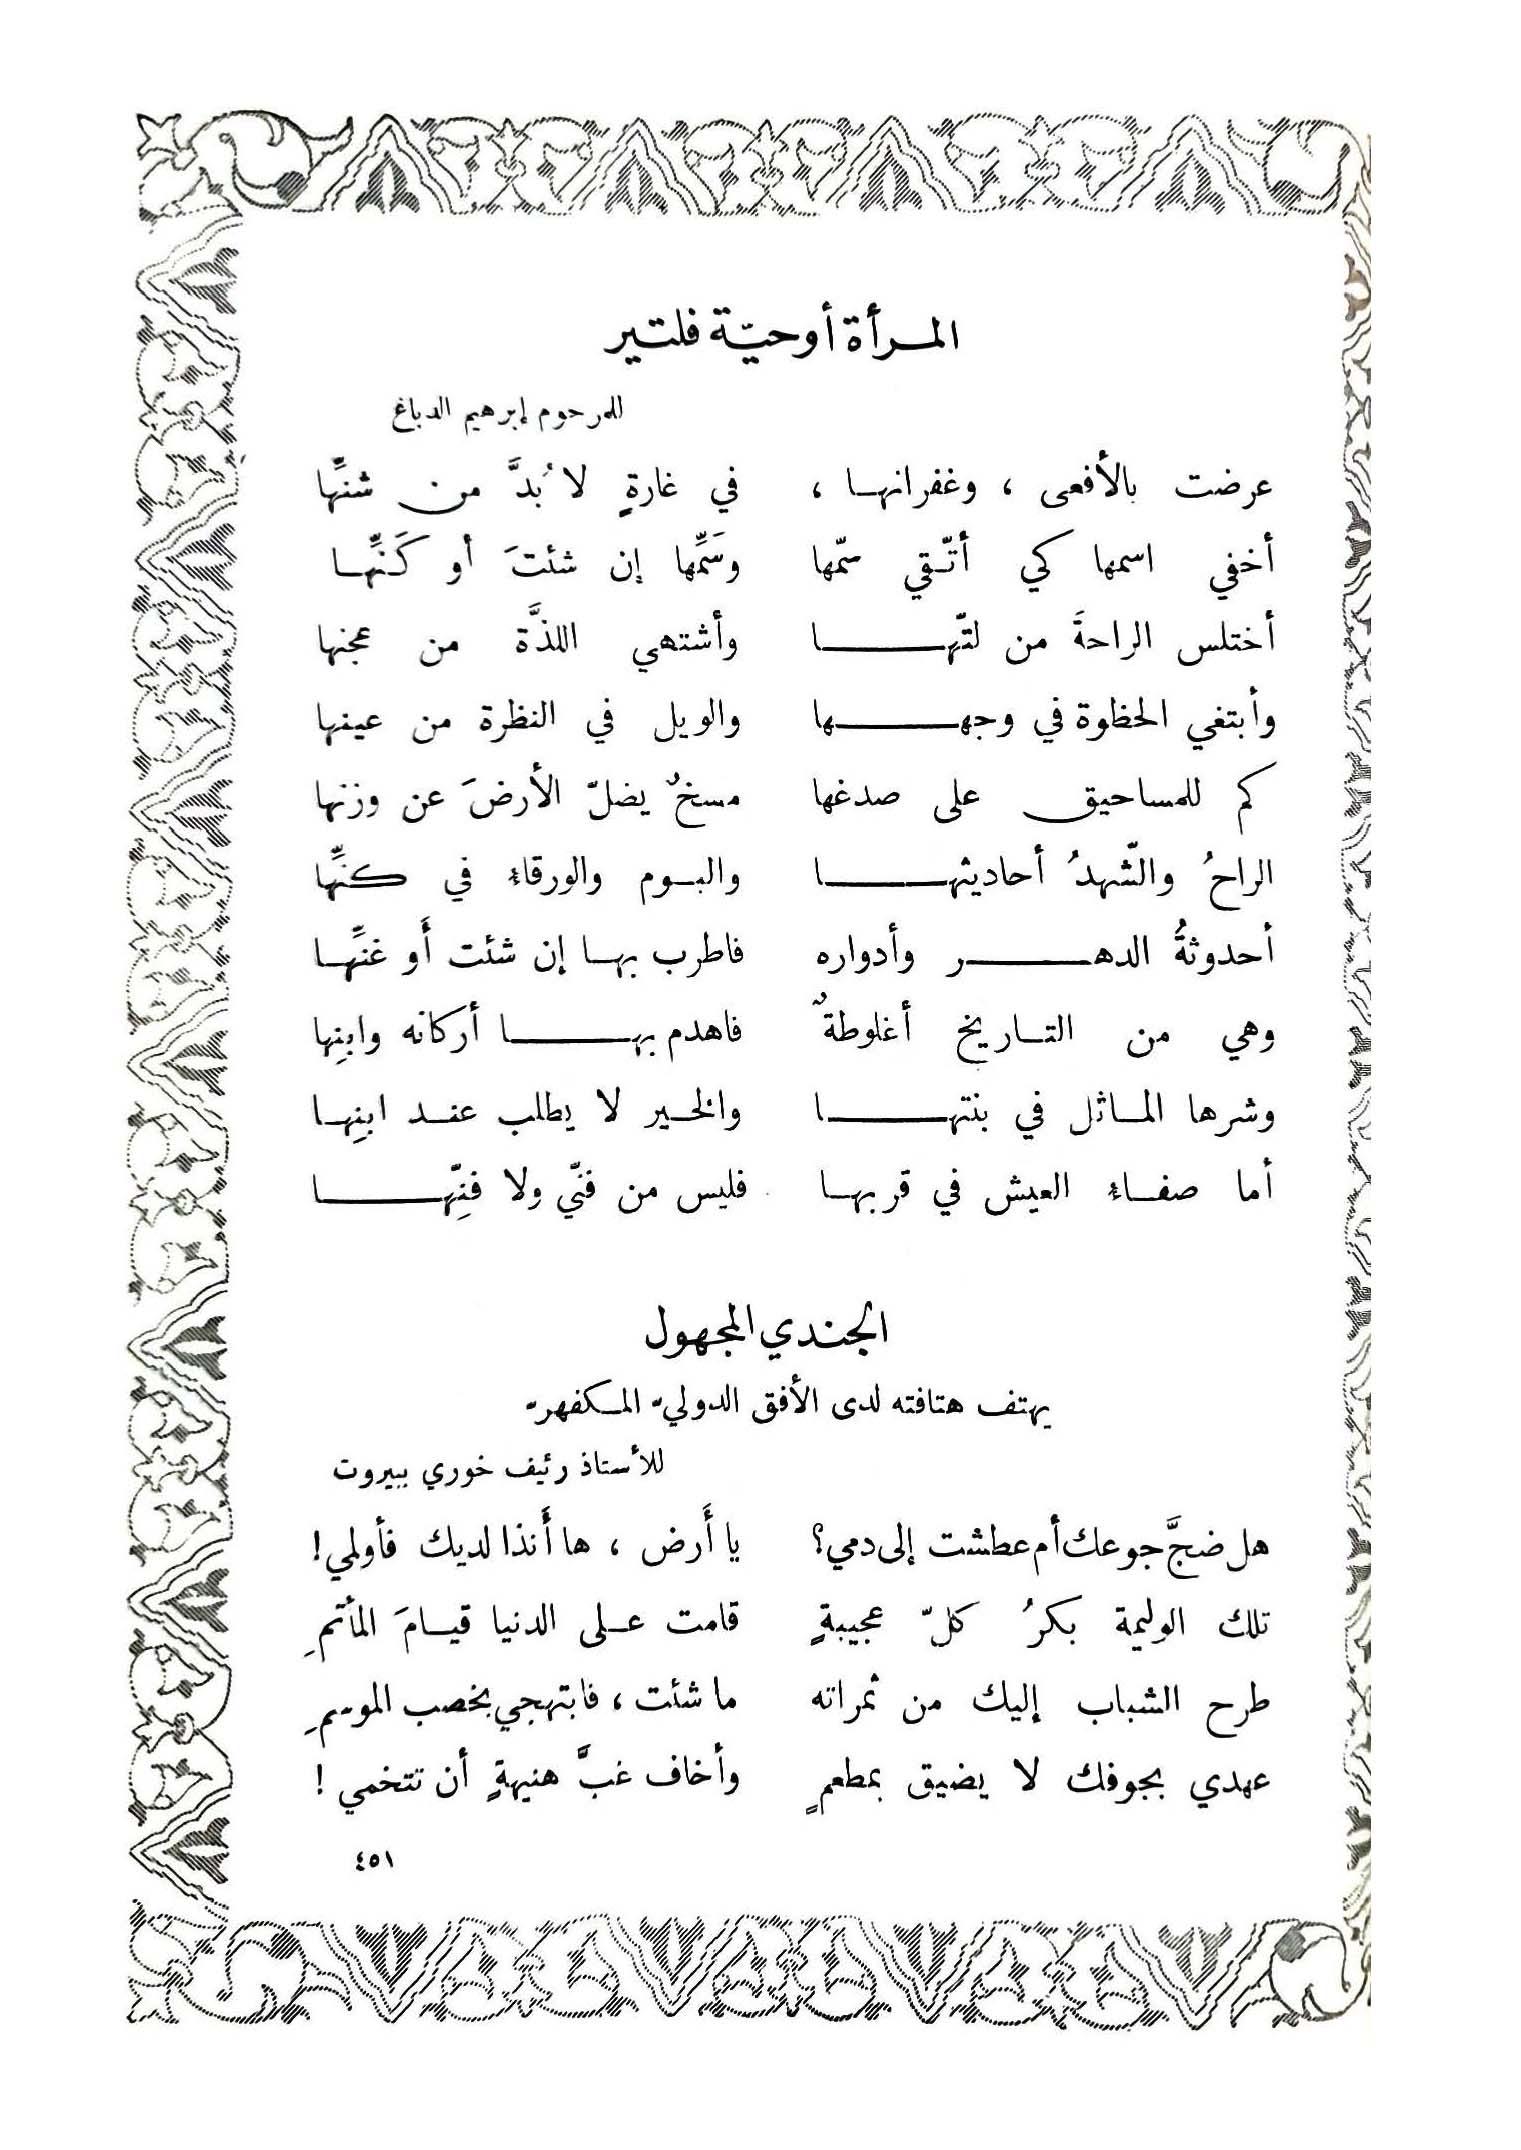 المرأة أو حيّة فلتير
للمرحوم إبرهيم الدباغ
عرضت بالأفعى ، وغفرانها ، في غارةٍ لا بُدَّ من شنّها
أخفي اسمها كي أتّقي سمّها وسَمِّها إن شئتَ أو كَنِّها
أختلس الراحةَ من لتّها وأشتهي اللذَّة من عجنها
وأبتغي الحظوة في وجهها والويل في النظرة من عينها
كم للمساحيق على صدغها مسخٌ يضلّ الأرضَ عن وزنها
الراحُ والشّهدُ أحاديثها والبوم والورقاء في كنِّها
أحدوثةُ الدهر وأدواره فاطرب بها إن شئت أَو غنِّها
وهي من التاريخ أغلوطةٌ فاهدم بها أركانه وابنِها
وشرها الماثل في بنتها والخير لا يطلب عند ابنِها
أما صفاء العيش في قربها فليس من فنّي ولا فنِّها
الجندي المجهول
يهتف هتافته لدى الأفق الدوليّ المكفهرّ
للأستاذ رئيف خوري ببيروت
هل ضجَّ جوعك أم عطشت إلى دمي؟ يا أَرض ، ها أَنذا لديك فأولمي !
تلك الوليمة بكرُ كلّ عجيبةٍ قامت على الدنيا قيامَ المأتمِ
طرح الشباب إليك من ثمراته ما شئت ، فابتهجي بخصب الموسمِ
عهدي بجوفك لا يضيق بمطعمٍ وأخاف غبَّ هنيهةٍ أن تتخمي !
٤٥١